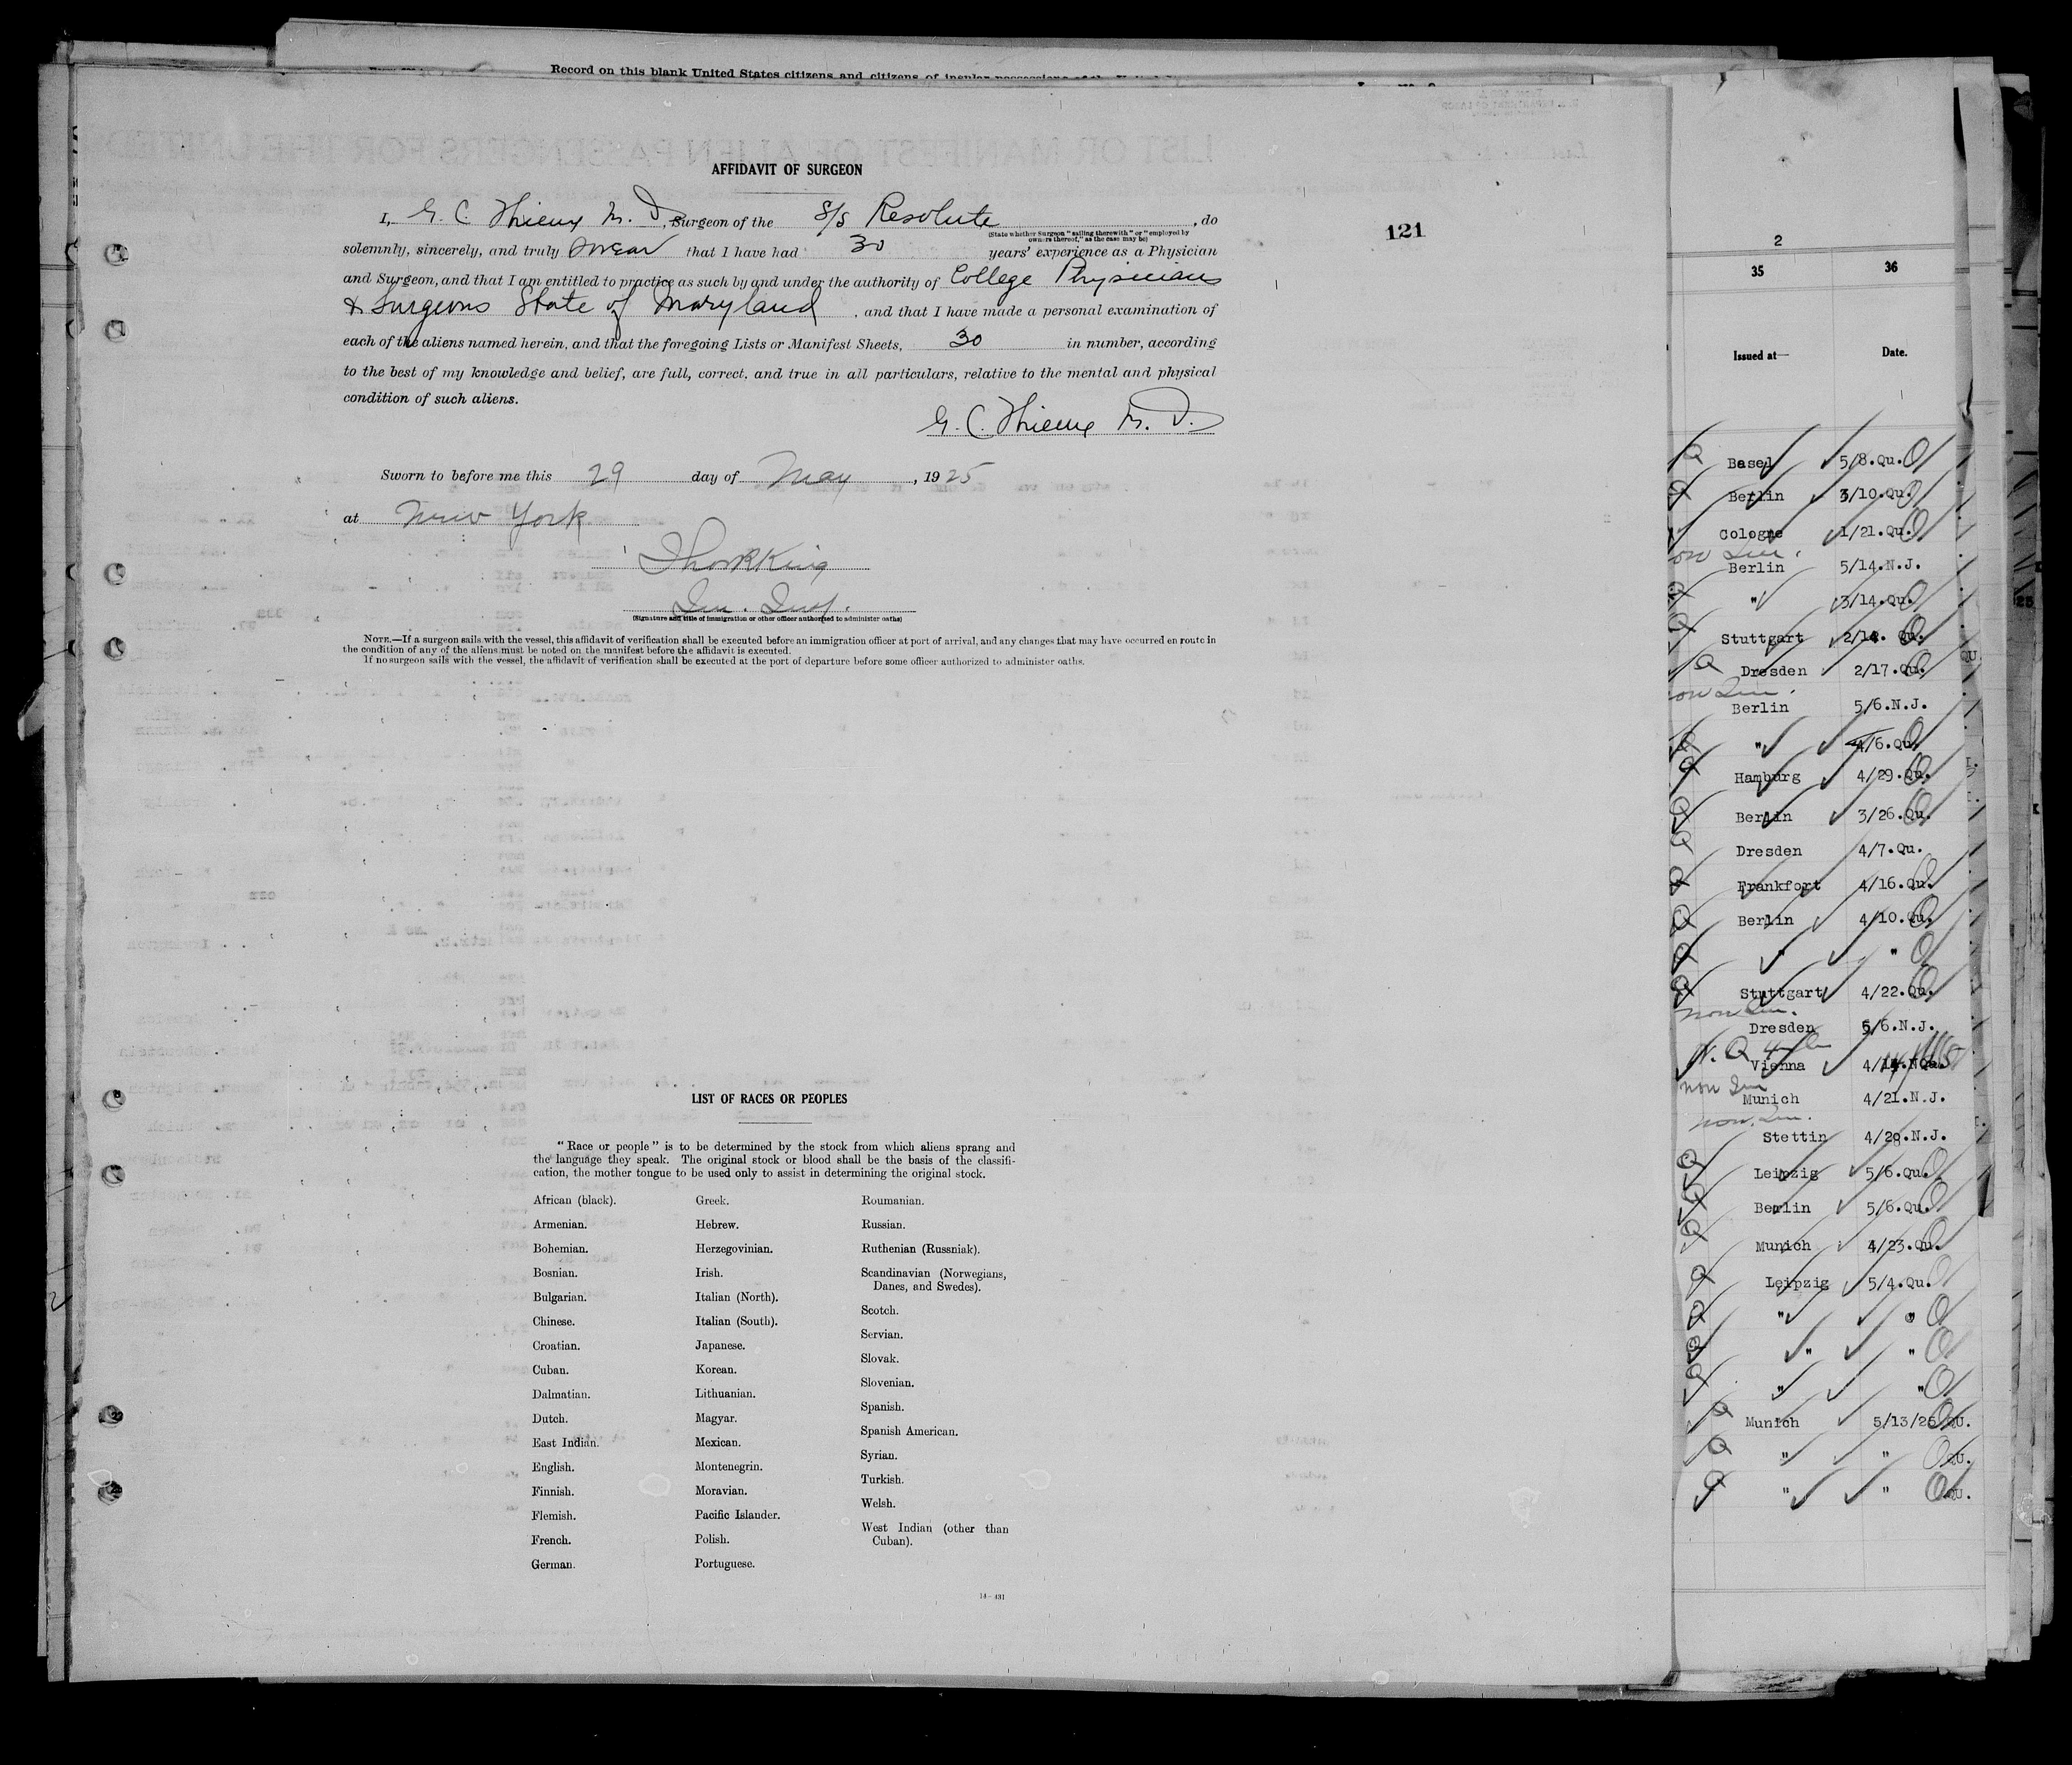 Record on this blank United States citizens and citizens of insular possessions of the
AFFIDAVIT OF SURGEON
I, G. C. Thieme M. D., Surgeon of the S/S Resolute, do
(State whether Surgeon "sailing therewith" or "employed by
owners thereof," as the case may be)
121
solemnly, sincerely, and truly swear that I have had 30 years' experience as a Physician
and Surgeon, and that I am entitled to practice as such by and under the authority of College Physicians
& Surgeons State of Maryland, and that I have made a personal examination of
each of the aliens named herein, and that the foregoing Lists or Manifest Sheets, 30 in number, according
to the best of my knowledge and belief, are full, correct, and true in all particulars, relative to the mental and physical
condition of such aliens.
G. C. Thieme M. D.
Sworn to before me this 29 day of May, 1925
at New York
Imm. Insp.
(Signature and title of immigration or other officer authorized to administer oaths)
NOTE.—If a surgeon sails with the vessel, this affidavit of verification shall be executed before an immigration officer at port of arrival, and any changes that may have occurred en route in
the condition of any of the aliens must be noted on the manifest before the affidavit is executed.
If no surgeon sails with the vessel, the affidavit of verification shall be executed at the port of departure before some officer authorized to administer oaths.
LIST OF RACES OR PEOPLES
"Race or people" is to be determined by the stock from which aliens sprang and
the language they speak. The original stock or blood shall be the basis of the classifi-
cation, the mother tongue to be used only to assist in determining the original stock.
African (black).
Armenian.
Bohemian.
Bosnian.
Bulgarian.
Chinese.
Croatian.
Cuban.
Dalmatian.
Dutch.
East Indian.
English.
Finnish.
Flemish.
French.
German.
Greek.
Hebrew.
Herzegovinian.
Irish.
Italian (North).
Italian (South).
Japanese.
Korean.
Lithuanian.
Magyar.
Mexican.
Montenegrin.
Moravian.
Pacific Islander.
Polish.
Portuguese.
Roumanian.
Russian.
Ruthenian (Russniak).
Scandinavian (Norwegians,
Danes, and Swedes).
Scotch.
Servian.
Slovak.
Slovenian.
Spanish.
Spanish American.
Syrian.
Turkish.
Welsh.
West Indian (other than
Cuban).
14—431
2
35 36
Issued at— Date.
Basel 5/8.Qu.
Berlin 3/10.Qu.
Cologne 1/21.Qu.
Berlin 5/14.N.J.
" 3/14.Qu.
Stuttgart 2/18. Qu.
Dresden 2/17.Qu.
Berlin 5/6.N.J.
" 4/6.Qu.
Hamburg 4/29.Qu.
Berlin 3/26.Qu.
Dresden 4/7.Qu.
Frankfort 4/16.Qu.
Berlin 4/10.Qu.
" "
Stuttgart 4/22.Qu.
non Im.
Dresden 5/6.N.J.
N. Q.
Vienna
non Im
Munich 4/21.N.J.
non. Im.
Stettin 4/28.N.J.
Leipzig 5/6.Qu.
Berlin 5/6.Qu.
Munich 4/23.Qu.
Leipzig 5/4.Qu.
" "
" "
" "
Munich 5/13/25 QU.
" " QU.
" " QU.